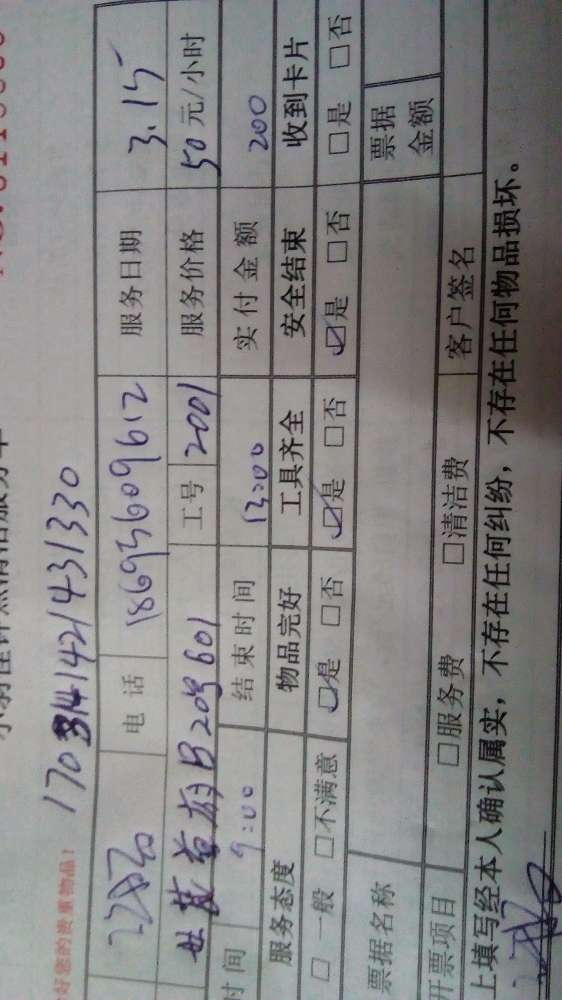 好您的贵重物品!
170314142431330
电话 18693609612 服务日期 3.15
B209601 工号 2001 服务价格 50元/小时
时间 9:00 结束时间 13:00 实付金额 200
服务态度 物品完好 工具齐全 安全结束 收到卡片
□一般 □不满意 ☑是 □否 ☑是 □否 ☑是 □否 □是 □否
票据名称 票据金额
开票项目 □服务费 □清洁费 客户签名
上填写经本人确认属实,不存在任何纠纷,不存在任何物品损坏。